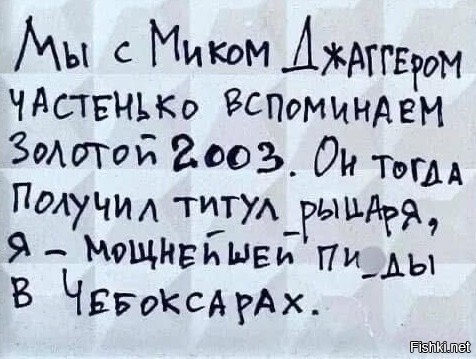 Мы с Миком Джаггером
частенько вспоминаем
золотой 2003. Он тогда
получил титул рыцаря,
я – мощнейшей пи_ды
в Чебоксарах.
Fishki.net